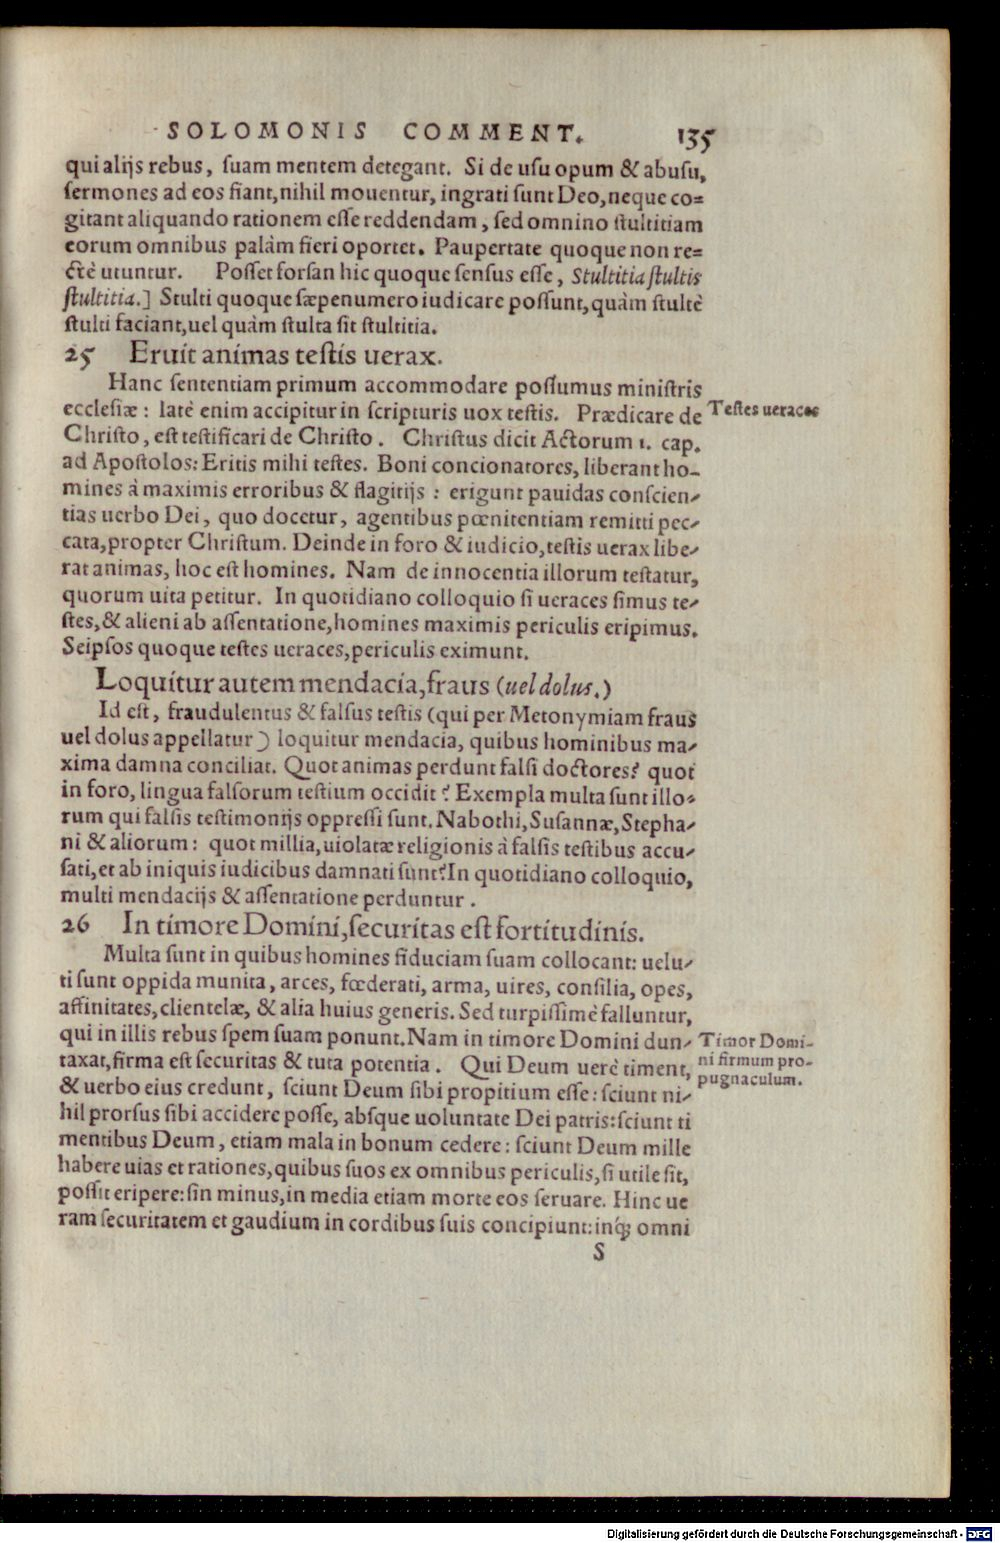 SOLOMONIS COMMENT. 135
qui alijs rebus, suam mentem detegant. Si de usu opum & abusu,
sermones ad eos fiant, nihil mouentur, ingrati sunt Deo, neque co=
gitant aliquando rationem esse reddendam, sed omnino stultitiam
eorum omnibus palàm fieri oportet. Paupertate quoque non re=
ctè utuntur. Posset forsan hic quoque sensus esse, Stultitia stultis
stultitia.] Stulti quoque sæpenumero iudicare possunt, quàm stultè
stulti faciant, uel quàm stulta sit stultitia.
25 Eruit animas testis uerax.
Hanc sententiam primum accommodare possumus ministris
ecclesiæ: latè enim accipitur in scripturis uox testis. Prædicare de
Testes ueraces
Christo, est testificari de Christo. Christus dicit Actorum 1. cap.
ad Apostolos: Eritis mihi testes. Boni concionatores, liberant ho-
mines à maximis erroribus & flagitijs: erigunt pauidas conscien-
tias uerbo Dei, quo docetur, agentibus pœnitentiam remitti pec-
cata, propter Christum. Deinde in foro & iudicio, testis uerax libe-
rat animas, hoc est homines. Nam de innocentia illorum testatur,
quorum uita petitur. In quotidiano colloquio si ueraces simus te-
stes, & alieni ab assentatione, homines maximis periculis eripimus.
Seipsos quoque testes ueraces, periculis eximunt.
Loquitur autem mendacia, fraus (uel dolus.)
Id est, fraudulentus & falsus testis (qui per Metonymiam fraus
uel dolus appellatur) loquitur mendacia, quibus hominibus ma-
xima damna conciliat. Quot animas perdunt falsi doctores? quot
in foro, lingua falsorum testium occidit? Exempla multa sunt illo-
rum qui falsis testimonijs oppressi sunt. Nabothi, Susannæ, Stepha-
ni & aliorum: quot millia, uiolatæ religionis à falsis testibus accu-
sati, et ab iniquis iudicibus damnati sunt? In quotidiano colloquio,
multi mendacijs & assentatione perduntur.
26 In timore Domini, securitas est fortitudinis.
Multa sunt in quibus homines fiduciam suam collocant: uelu-
ti sunt oppida munita, arces, fœderati, arma, uires, consilia, opes,
affinitates, clientelæ, & alia huius generis. Sed turpissimè falluntur,
qui in illis rebus spem suam ponunt. Nam in timore Domini dun-
taxat, firma est securitas & tuta potentia. Qui Deum uerè timent,
Timor Domi-
ni firmum pro-
pugnaculum.
& uerbo eius credunt, sciunt Deum sibi propitium esse: sciunt ni-
hil prorsus sibi accidere posse, absque uoluntate Dei patris: sciunt ti
mentibus Deum, etiam mala in bonum cedere: sciunt Deum mille
habere uias et rationes, quibus suos ex omnibus periculis, si utile sit,
possit eripere: sin minus, in media etiam morte eos seruare. Hinc ue
ram securitatem et gaudium in cordibus suis concipiunt: inq́; omni
S
Digitalisierung gefördert durch die Deutsche Forschungsgemeinschaft - DFG